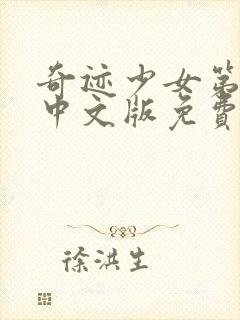 奇迹少女第
中文版免费
徐洪生